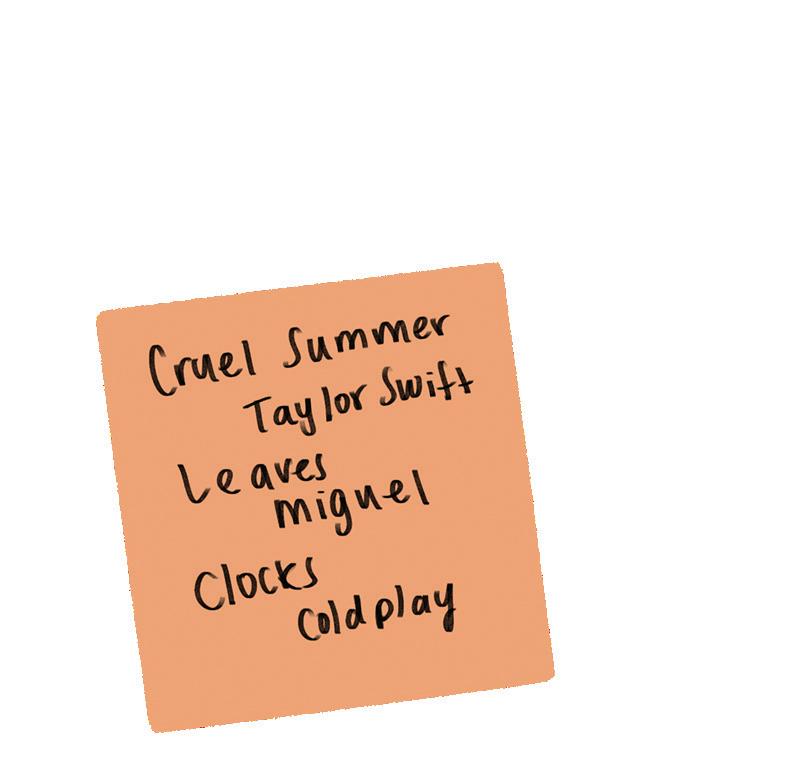 Cruel Summer
Taylor Swift
Leaves
miguel
Clocks
Coldplay